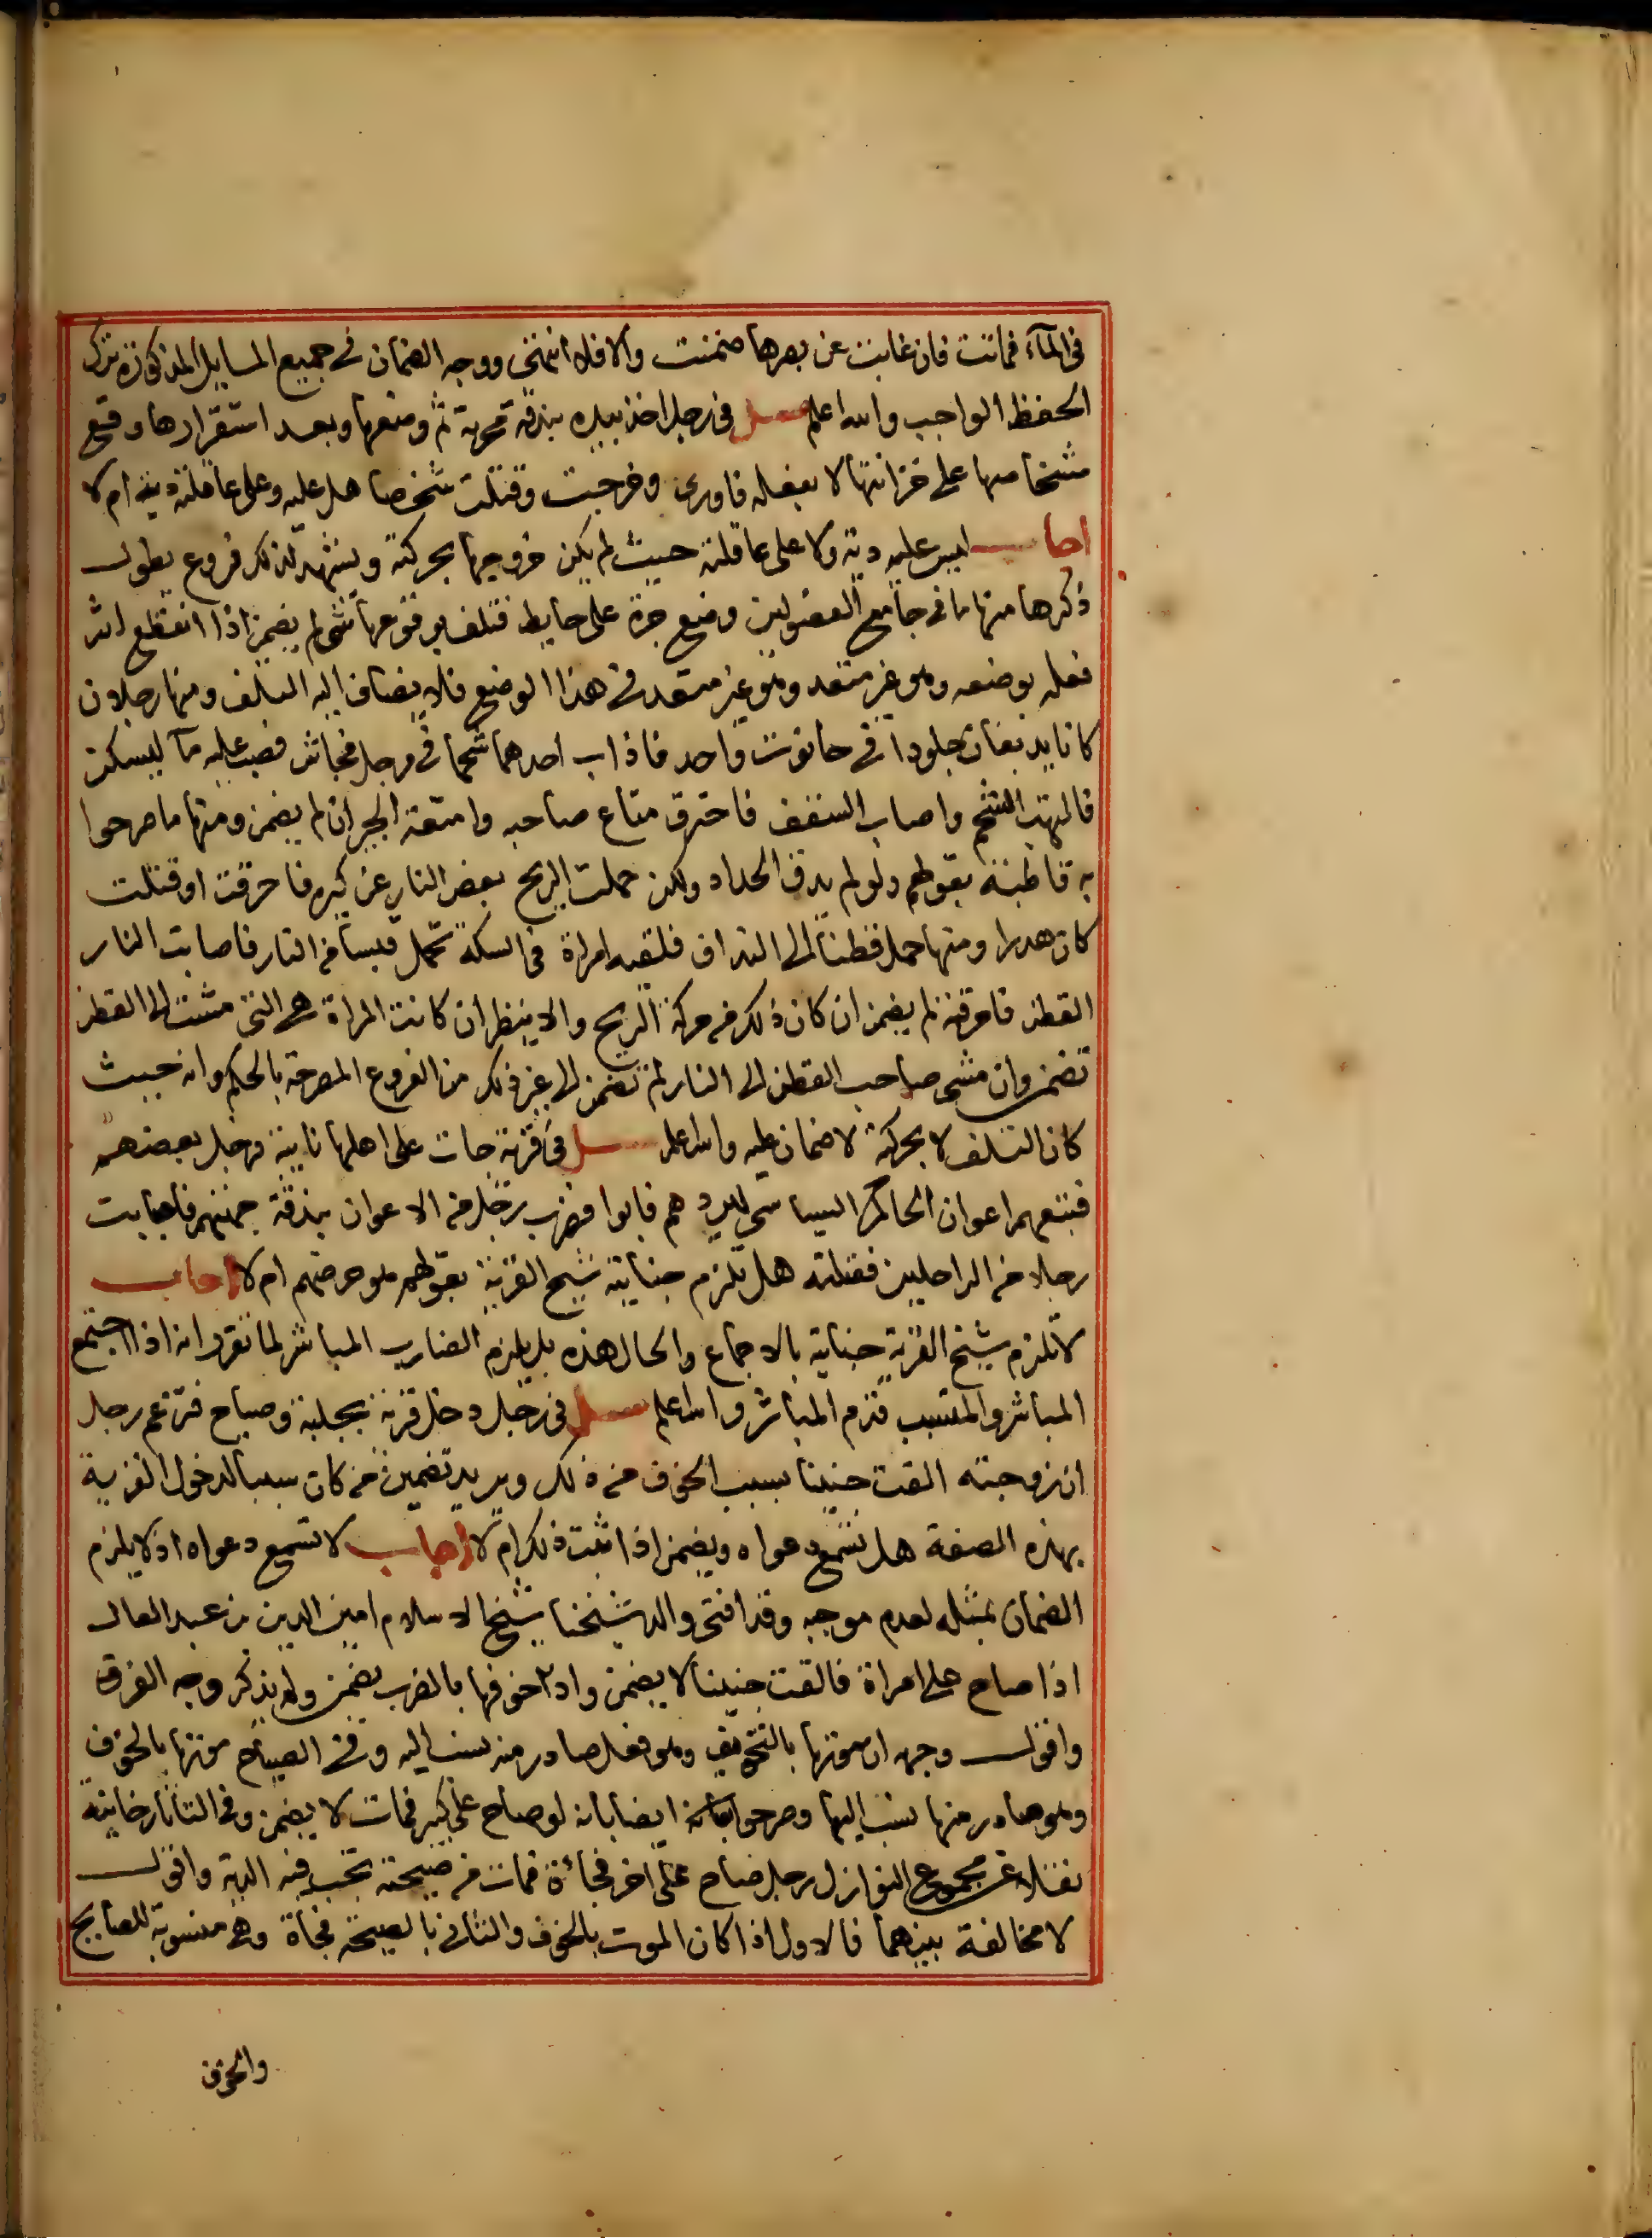 في المآء فماتت فان غابت عن بصرها ضمنت والا فلا انتهى ووجه الضمان في جميع المسايل المذكورة ترك
الحفظ الواجب والله اعلم سئل في رجل اخذ بيده بندقة مجربة ثم وضعها وبعد استقرارها وقع
على خزانتها لا بفعله فاورى وخرجت وقتلت شخصا هل عليه وعلى عاقلته دية ام لا
اجاب ليس عليه دية ولا على عاقلته حيث لم يكن خروجها بحركته ويشهد لذلك فروع يطول
ذكرها منها ما في جامع الفصولين وضع جرة على حايط فتلف بوقوعها شي لم يضمن اذا انقطع اثر
فعله بوضعه وهو غير متعد وهو غير متعد في هذا الوضع فلا يضاف اليه التلف ومنها رجلان
كانا يدبغان جلودا في حانوت واحد فاذاب احدهما شحما في مرجل نحاس فصب عليه مآ ليسكن
فالتهب الشحم واصاب السقف فاحترق متاع صاحبه وامتعة الجيران لم يضمن ومنها ما صرحوا
به قاطبة بقولهم ولو لم يدق الحداد ولكن حملت الريح بعض النار عن كيره فاحرقت او قتلت
كان هدرا ومنها حمل قطنا الى النداف فلقيه امراة في السكة تحمل قبسا من النار فاصابت النار
القطن فاحرقته لم يضمن ان كان ذلك من حركة الريح والا ينظر ان كانت المراة هي التي مشت الى القطن
تضمن وان مشى صاحب القطن الى النار لم تضمن الى غير ذلك من الفروع المصرحة بالحكم وانه حيث
كان التلف لا بحركته لا ضمان عليه والله اعلم سئل في قرية جات على اهلها نايبة فرحل بعضهم
فتبعهم اعوان الحاكم السياسي ليردهم فابوا فضرب رجل من الاعوان بندقة جهتهم فاصابت
رجلا من الراحلين فقتلته هل تلزم جنايته شيخ القرية بقولهم هو حرضهم ام لا اجاب
لا تلزم شيخ القرية جناية بالاجماع والحال هذه بل يلزم الضارب المباشر لما تقرر انه اذا اجتمع
المباشر والمتسبب قدم المباشر والله اعلم سئل في رجل دخل قرية بجلبة وصياح فزعم رجل
ان زوجته القت جنينا بسبب الخوف من ذلك ويريد تضمين من كان سببا لدخول القرية
بهذه الصفة هل تسمع دعواه ويضمن اذا ثبت ذلك ام لا اجاب لا تسمع دعواه اذ لا يلزم
الضمان بمثله لعدم موجبه وقد افتى والد شيخنا شيخ الاسلام امين الدين بن عبد العال
اذا صاح على امراة فالقت جنينا لا يضمن واذا خوفها بالضرب يضمن ولم يذكر وجه الفرق
واقول وجهه ان موتها بالتخويف وهو فعل صادر منه نسب اليه وفي الصياح موتها بالخوف
وهو صادر منها نسب اليها وصرحوا ايضا بانه لو صاح على كبير فمات لا يضمن وفي التاتارخانية
نقلا عن مجموع النوازل رجل صاح على اخر فجأة فمات من صيحته تجب فيه الدية واقول
لا مخالفة بينهما فالاول اذا كان الموت بالخوف والثاني بالصيحة فجأة وهي منسوبة للصايح
والخوف